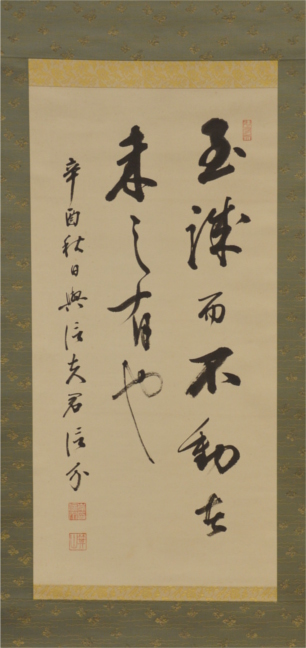 至誠而不動者
未之有也
辛酉秋日與信夫君信介